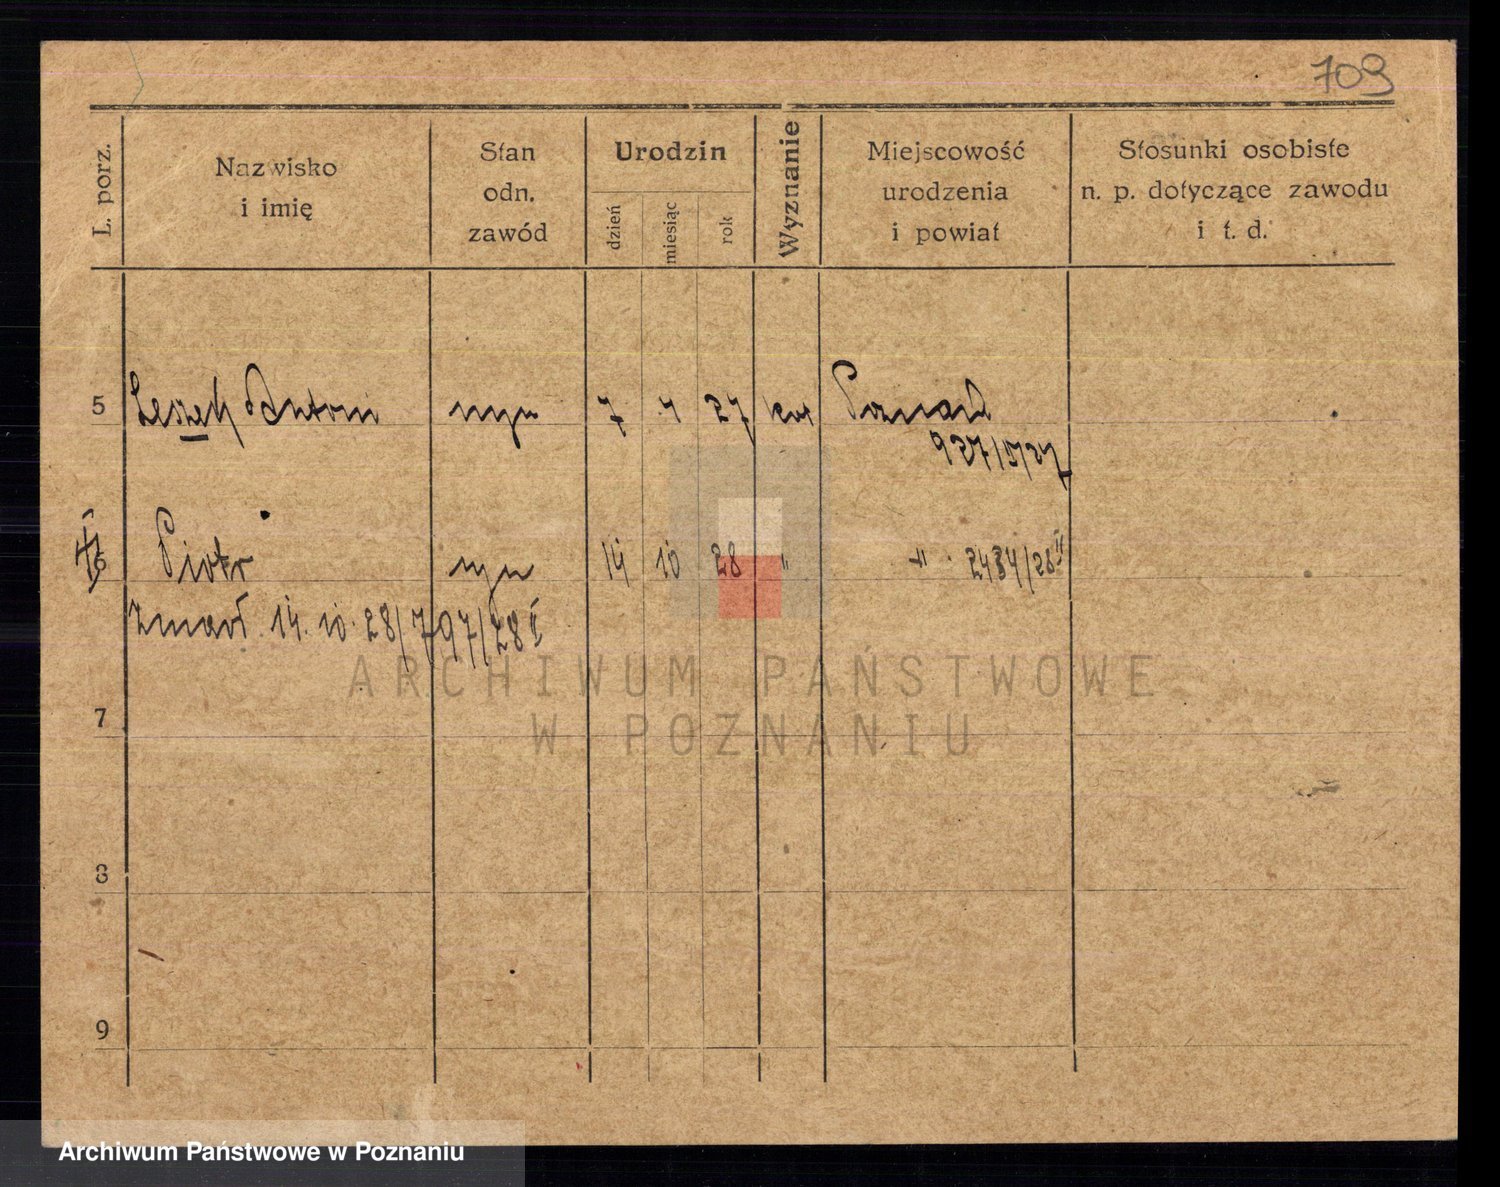 709
L. porz.
Nazwisko
i imię
Stan
odn.
zawód
Urodzin
dzień
miesiąc
rok
Wyznanie
Miejscowość
urodzenia
i powiat
Stosunki osobiste
n. p. dotyczące zawodu
i t. d.
5 Leszek Antoni syn 7 4 27 kat Poznań
6 Piotr syn 14 10 28 " " 2434/28 II
zmarł 14. 10. 28/797/28 II
7
8
9
ARCHIWUM PAŃSTWOWE
W POZNANIU
Archiwum Państwowe w Poznaniu